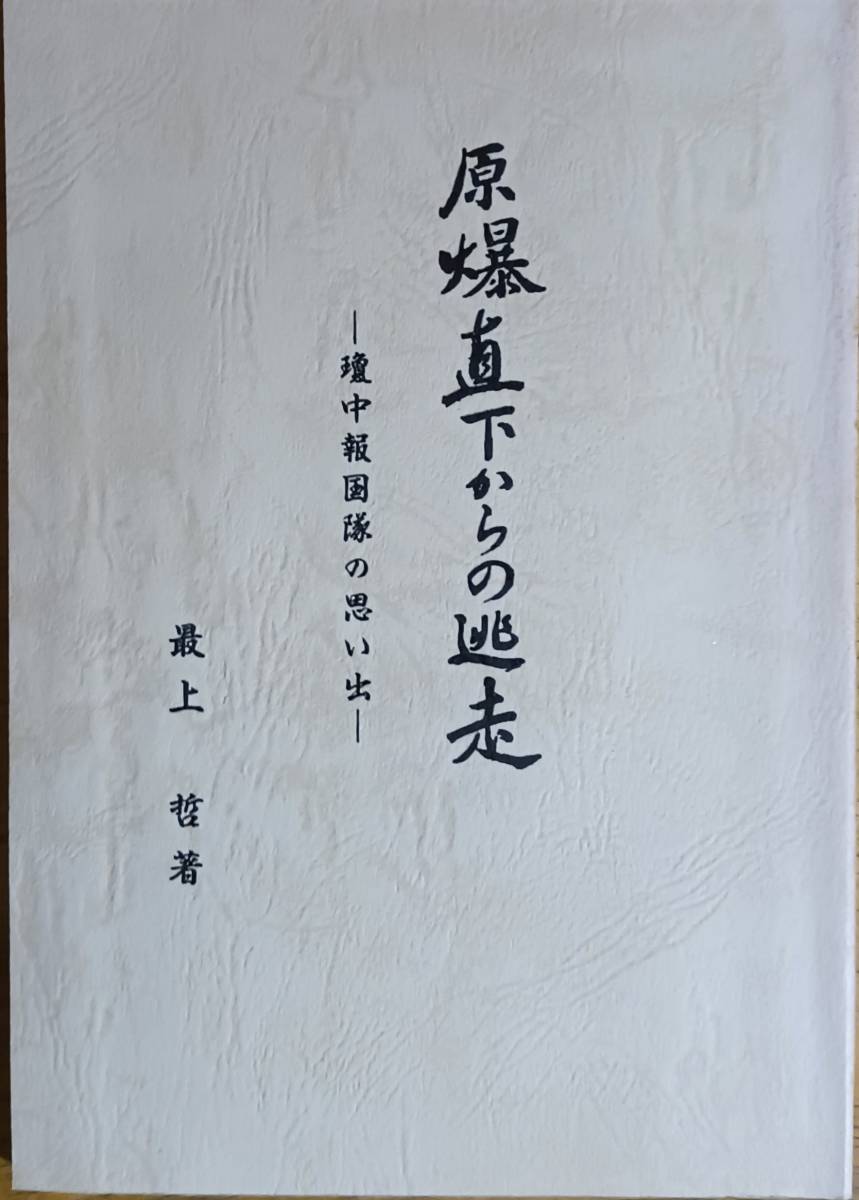 原爆直下からの逃走
―瓊中報国隊の思い出―
最上 哲著